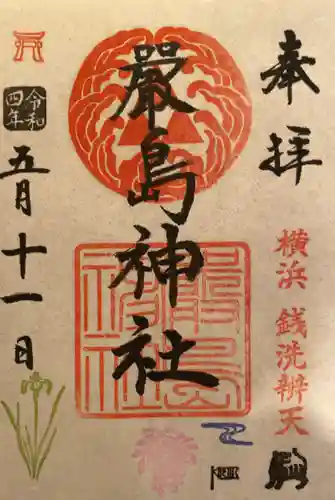 奉拝
横浜 銭洗辨天
嚴島神社
嚴島神社
令和四年
五月十一日